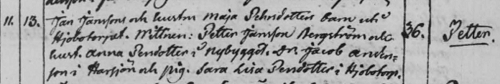 11. 13. Jan Jansson och hustru Maja Pehrsdotters barn uti
Hjobotorpet. Wittnen: Petter Jansson Bergström och 36. Petter.
hust. Anna Persdotter i nybygget. Dr. Jacob Anders-
son i Harsjön och pig. Sara Lisa Persdotter i Hjobotorp.